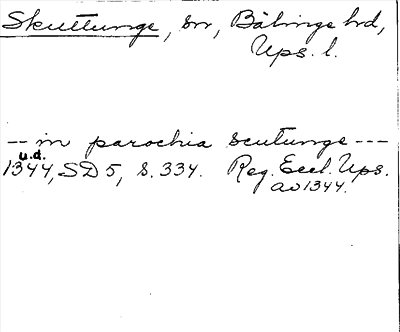 Skuttunge, sn, Bälinge hd,
Ups. l.
-- in parochia scutunge ---
u.d.
1344, SD 5, s. 334. Reg. Eccl. Ups.
av 1344.